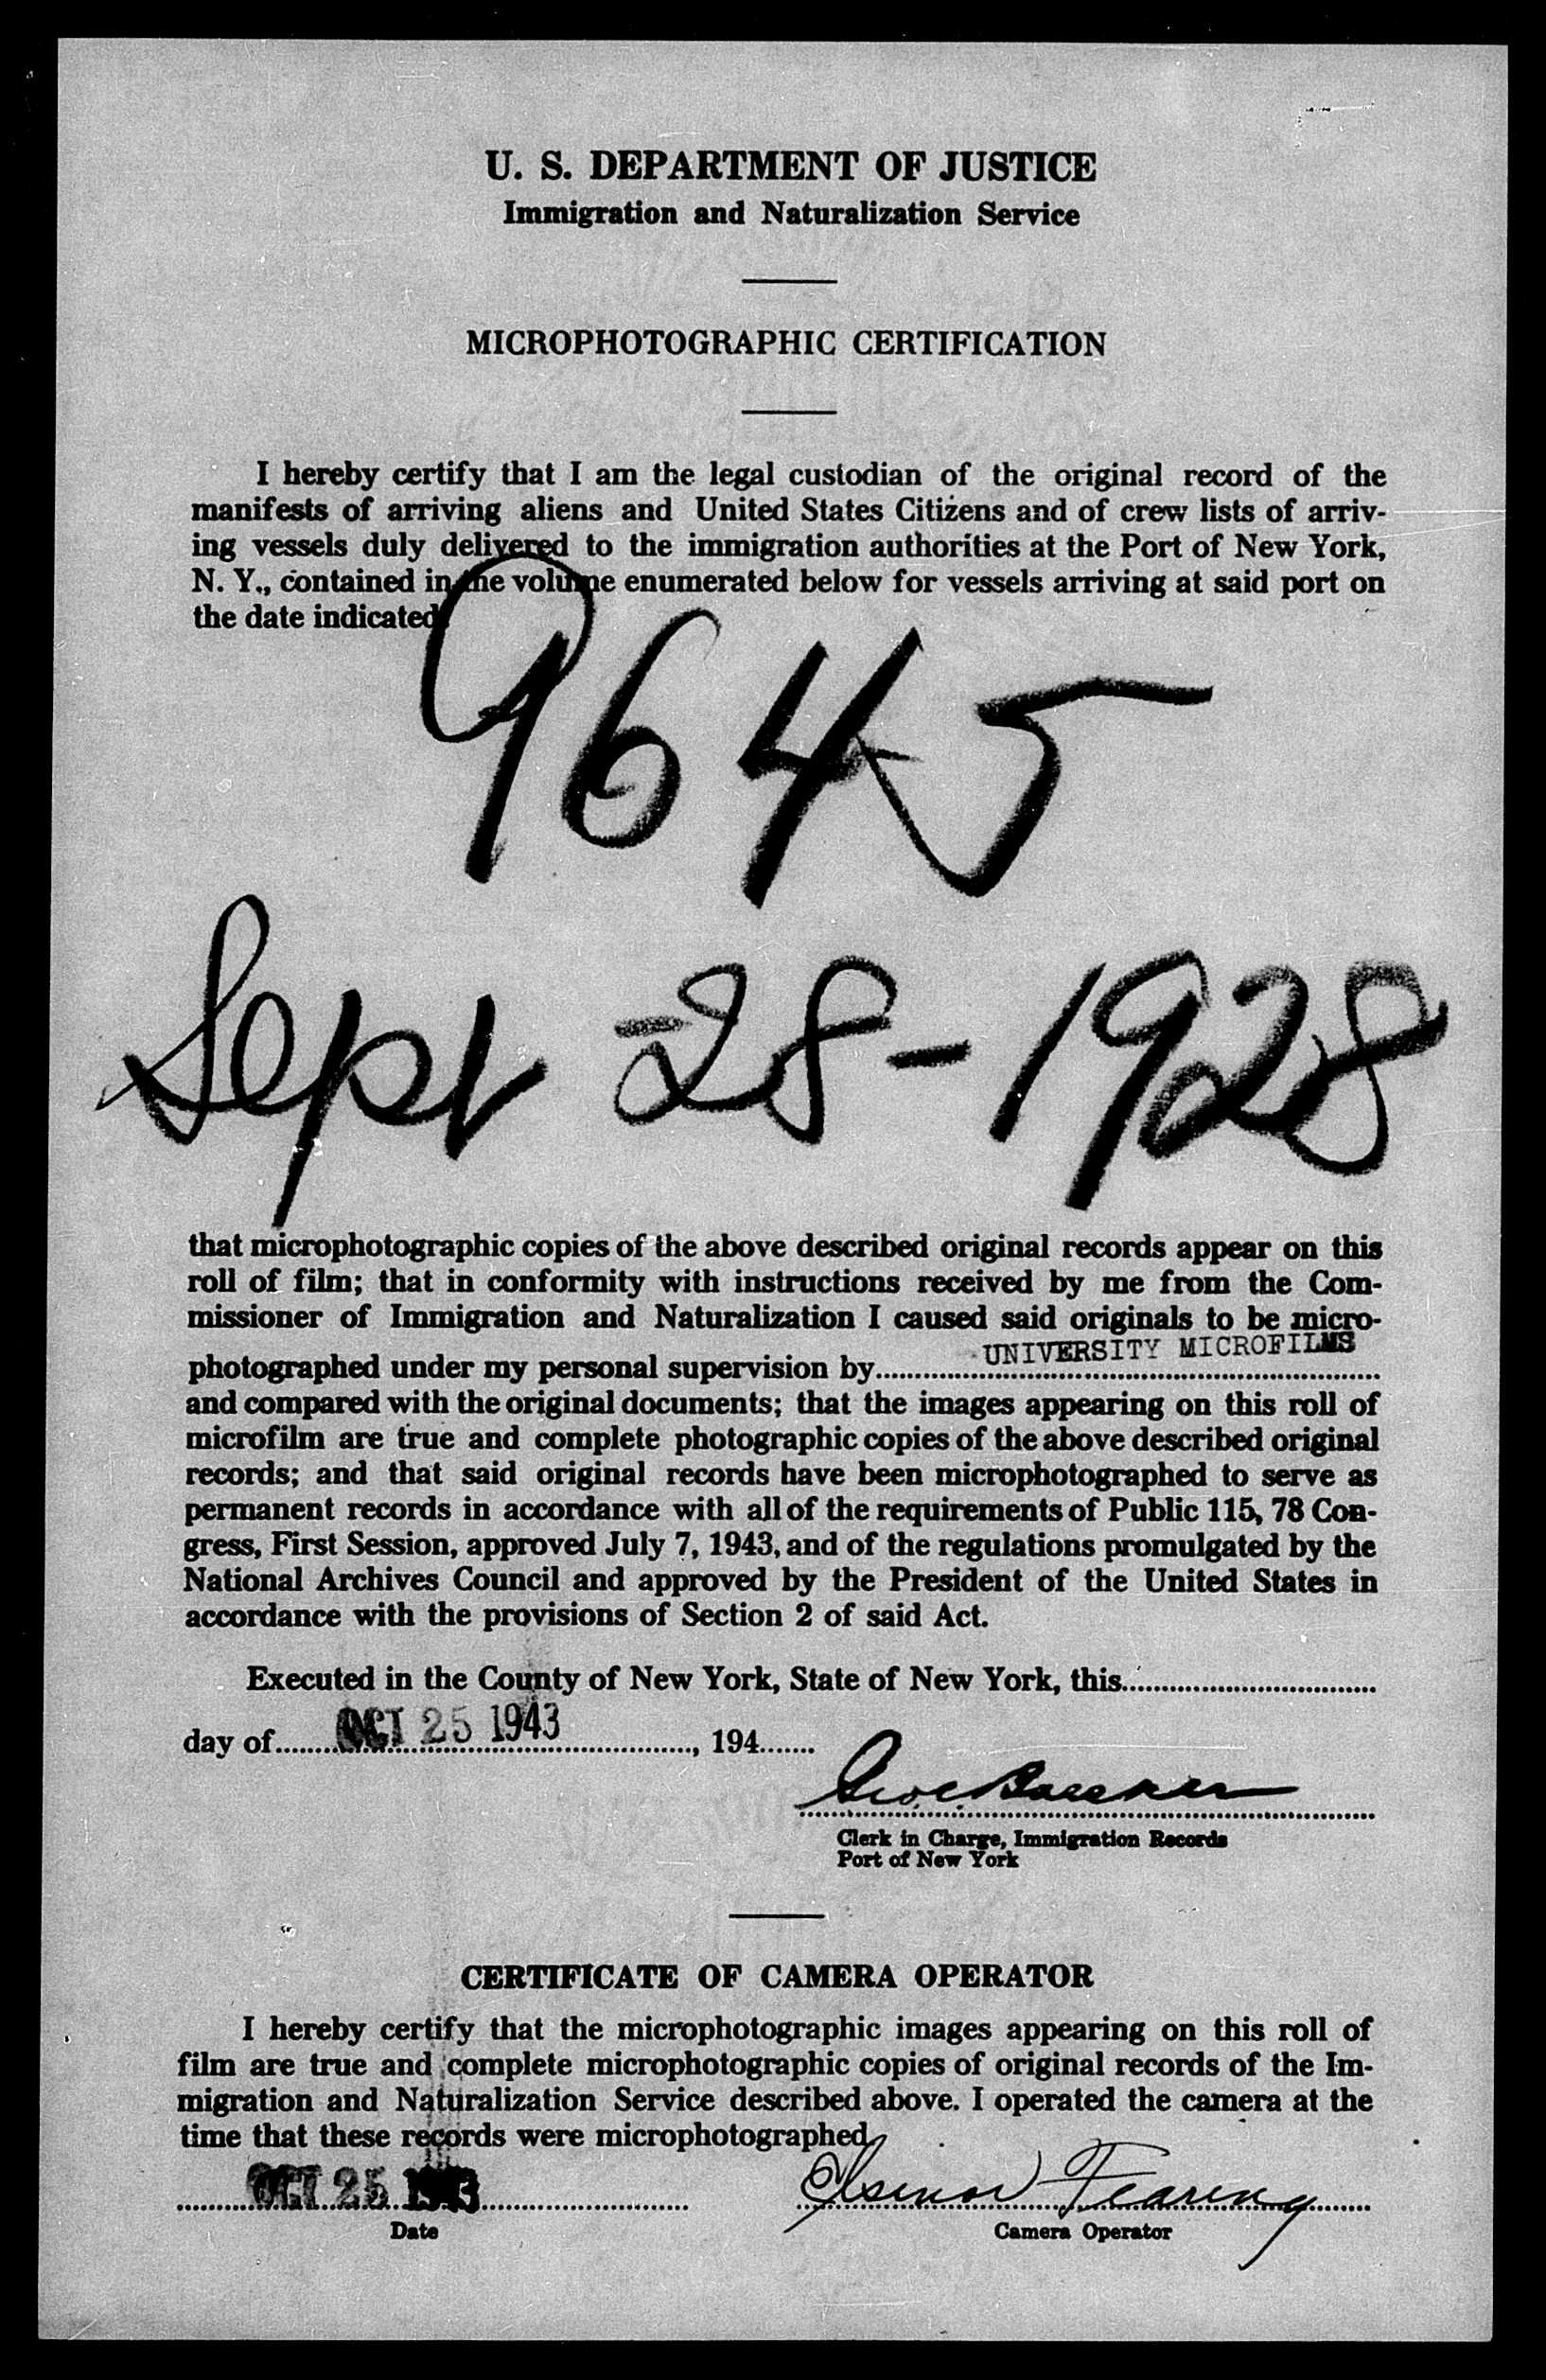 U. S. DEPARTMENT OF JUSTICE
Immigration and Naturalization Service
MICROPHOTOGRAPHIC CERTIFICATION
I hereby certify that I am the legal custodian of the original record of the
manifests of arriving aliens and United States Citizens and of crew lists of arriv-
ing vessels duly delivered to the immigration authorities at the Port of New York,
N. Y., contained in the volume enumerated below for vessels arriving at said port on
the date indicated
9645
Sept 28-1928
that microphotographic copies of the above described original records appear on this
roll of film; that in conformity with instructions received by me from the Com-
missioner of Immigration and Naturalization I caused said originals to be micro-
photographed under my personal supervision by UNIVERSITY MICROFILMS
and compared with the original documents; that the images appearing on this roll of
microfilm are true and complete photographic copies of the above described original
records; and that said original records have been microphotographed to serve as
permanent records in accordance with all of the requirements of Public 115, 78 Con-
gress, First Session, approved July 7, 1943, and of the regulations promulgated by the
National Archives Council and approved by the President of the United States in
accordance with the provisions of Section 2 of said Act.
Executed in the County of New York, State of New York, this
day of OCT 25 1943, 194
Clerk in Charge, Immigration Records
Port of New York
CERTIFICATE OF CAMERA OPERATOR
I hereby certify that the microphotographic images appearing on this roll of
film are true and complete microphotographic copies of original records of the Im-
migration and Naturalization Service described above. I operated the camera at the
time that these records were microphotographed
OCT 25 1943 Fearing
Date Camera Operator